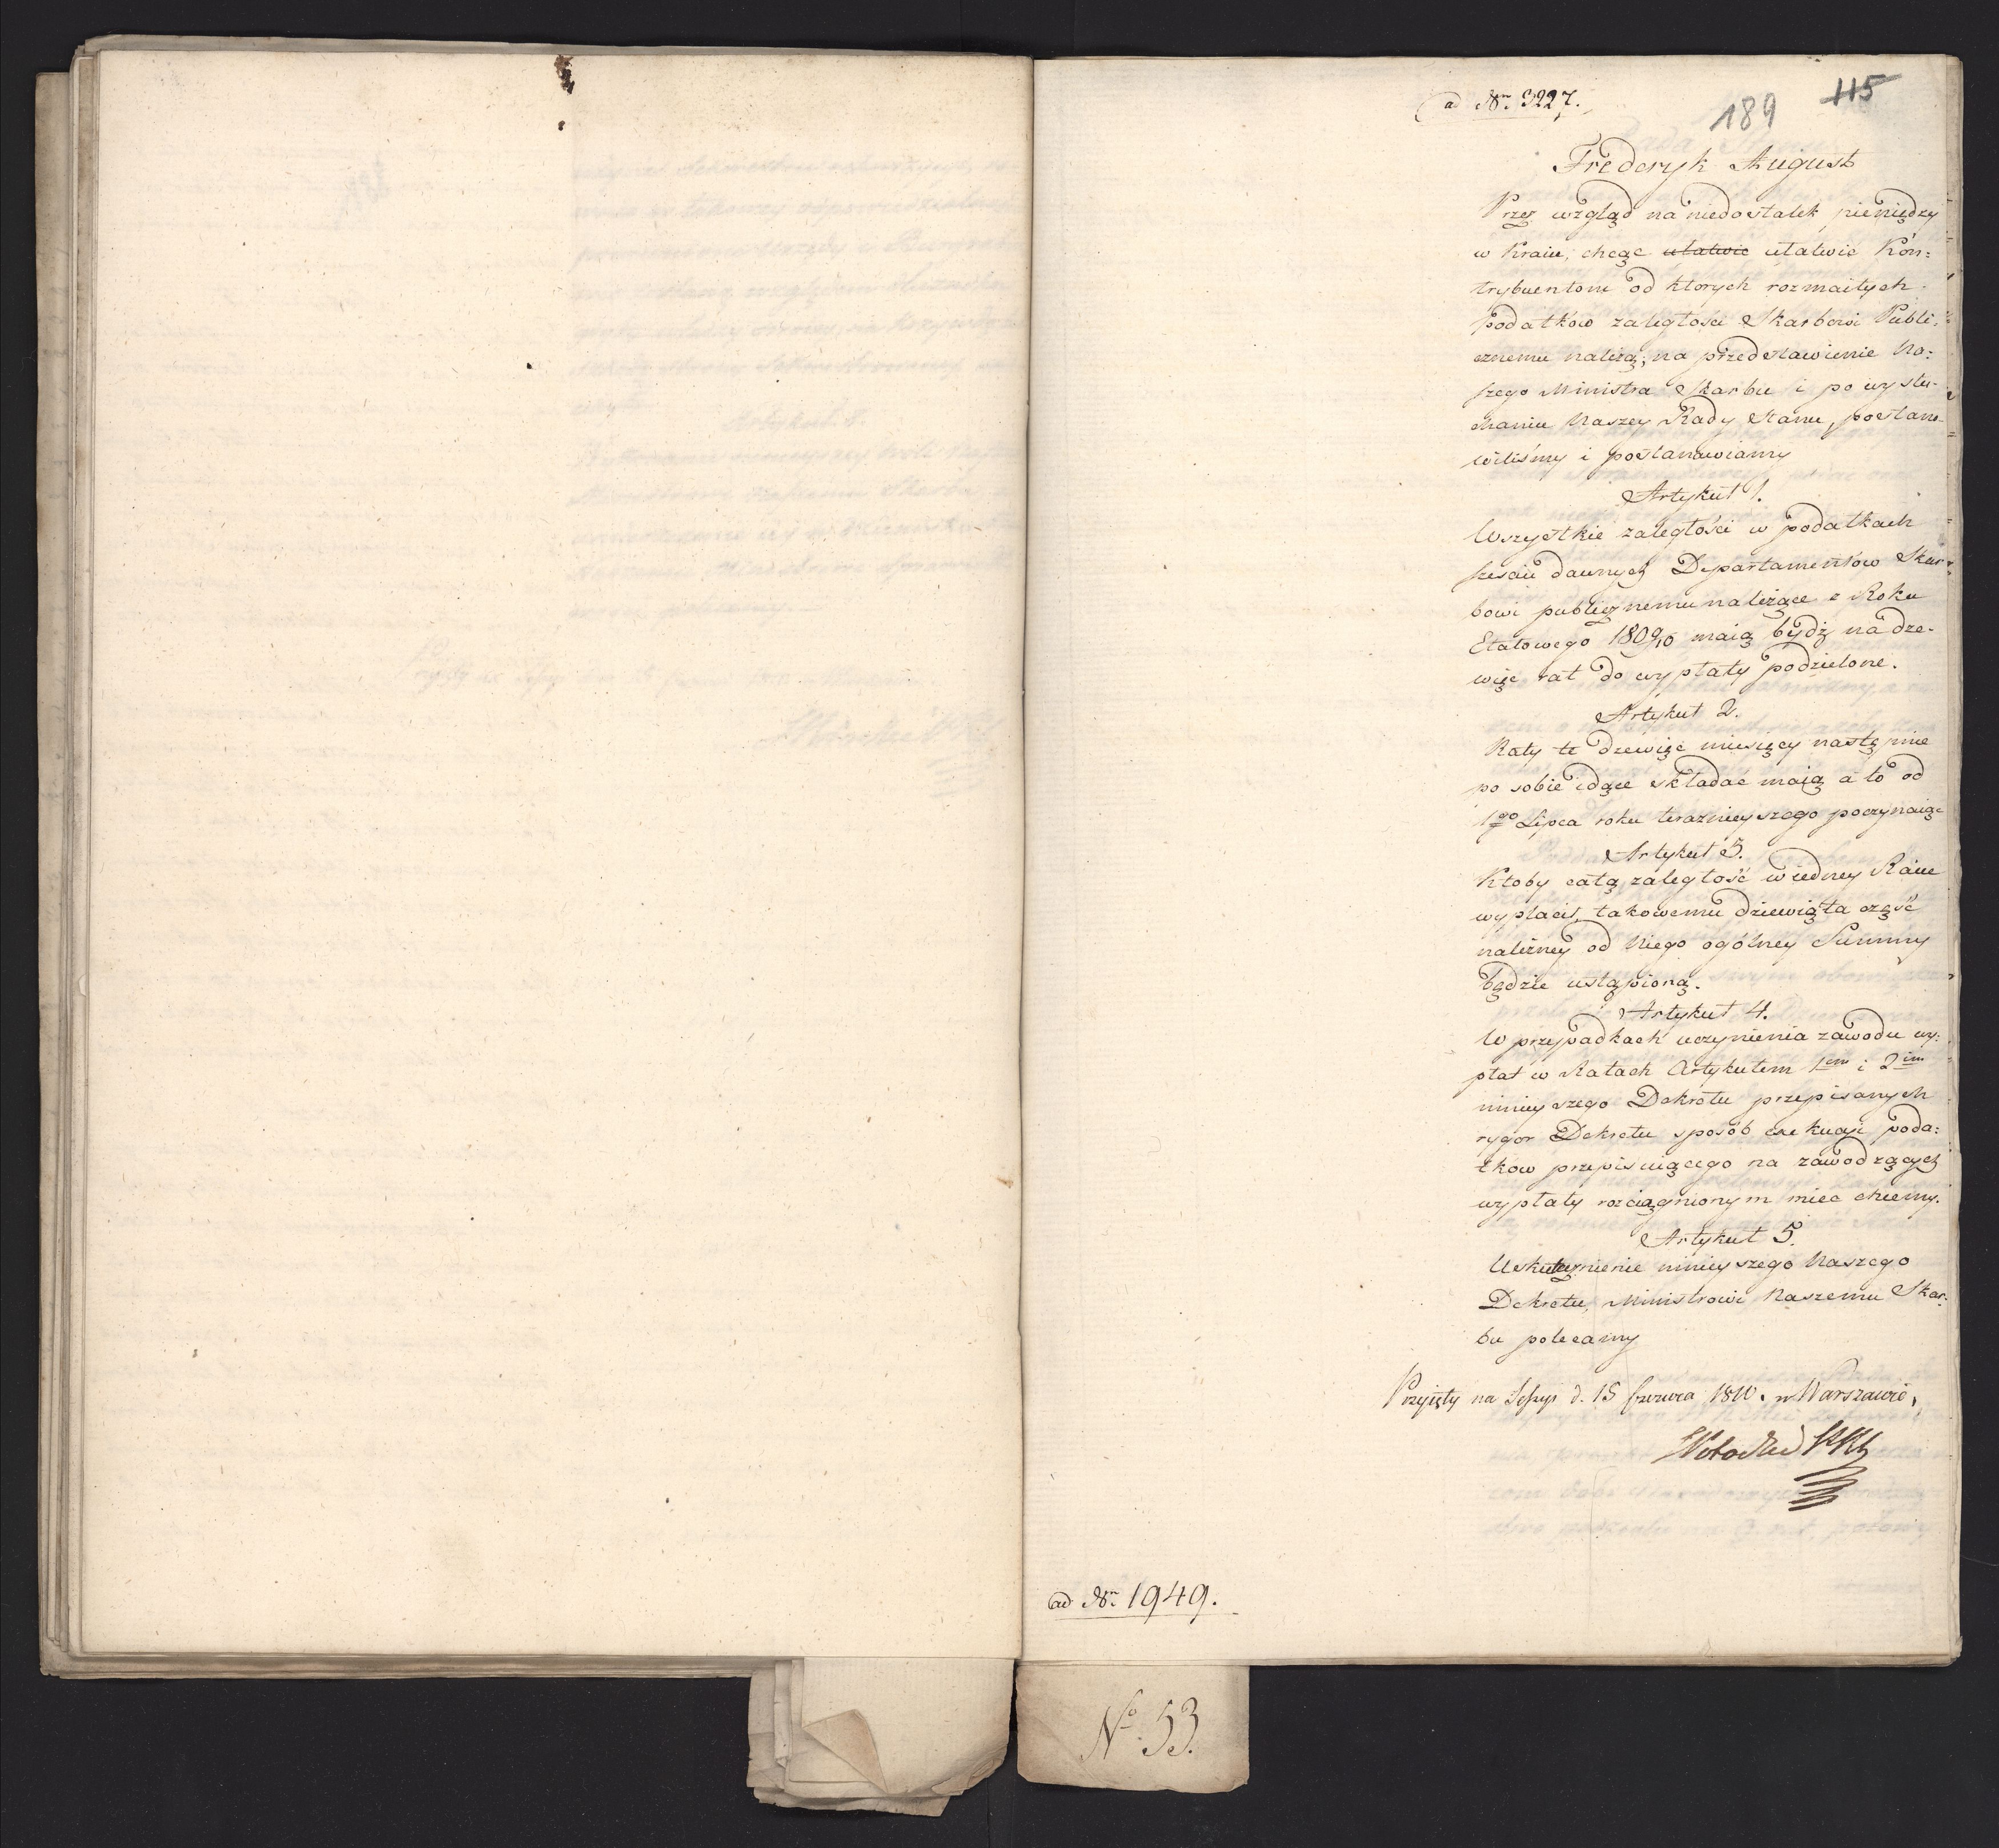 ad Nrm 3227.
189 115
Frederyk August
Przez wzgląd na niedostatek pieniędzy
w Kraiu, chcąc ułatwić ułatwić Kon:
trybuentom od ktorych rozmaitych
podatków zaległości Skarbowi Publi:
cznemu należą, na przedstawienie Na:
szego Ministra Skarbu i po wysłu-
chaniu Naszey Rady Stanu, postano-
wiliśmy i postanawiamy
Artykuł 1.
Wszystkie zaległości w podatkach
sześciu dawnych Departamentów Skar-
bowi publicznemu należące z Roku
Etatowego 1809/10 maią bydź na dze-
więć rat do wypłaty podzielone.
Artykuł 2.
Raty te dzewięć miesięcy następnie
po sobie idące składać maią a to od
1go Lipca roku teraznieyszego poczynaiąc
Artykuł 3.
Ktoby całą zaległość w iedney Racie
wypłacił, takowemu dziewiąta część
należney od Niego ogólney Summy
będzie ustąpioną.
Artykuł 4.
W przypadkach uczynienia zawodu wy:
płat w Ratach Artykułem 1em i 2im
ninieyszego Dekretu przepisanych
rygor Dekretu sposób exekucyi poda:
tków przepisuiącego na zawodzących
wypłaty rozciągnionym mieć chcemy.
Artykuł 5.
Uskutecznienie ninieyszego Naszego
Dekretu, Ministrowi Naszemu Skar:
bu polecamy
Przyięty na Sessyi d. 15 Czerwca 1810. w Warszawie,
ad Nrm 1949.
No. 53.